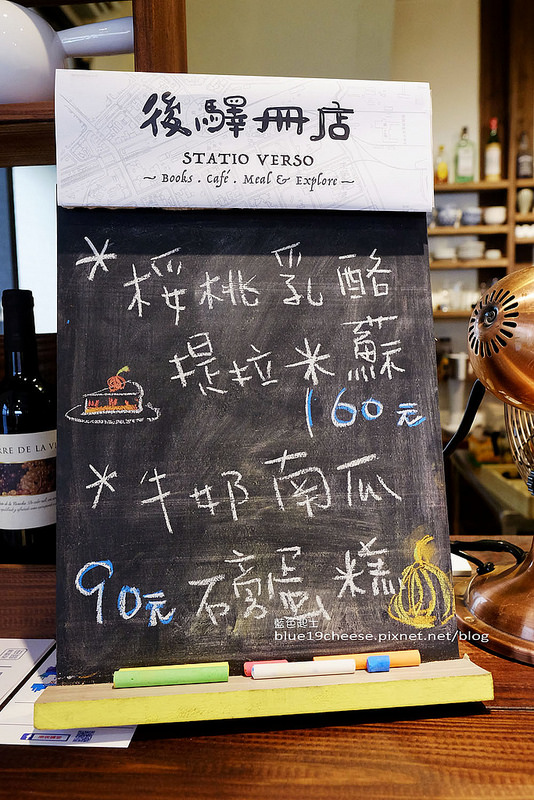 後驛冊店
STATIO VERSO
~ Books . Café . Meal & Explore ~
* 桜桃乳酪
提拉米蘇
160元
* 牛奶南瓜
90元 磅蛋糕
藍色起士
blue19cheese.pixnet.net/blog
RRE DE LA V